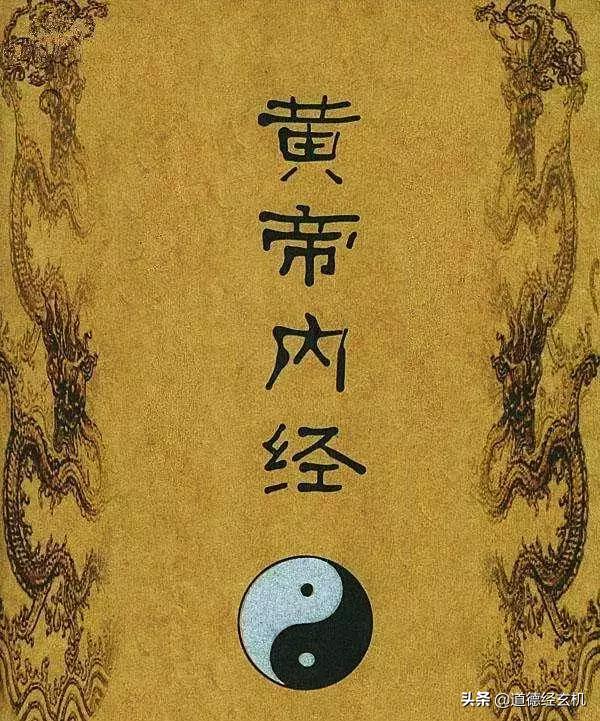 黄帝内经
头条 @道德经玄机